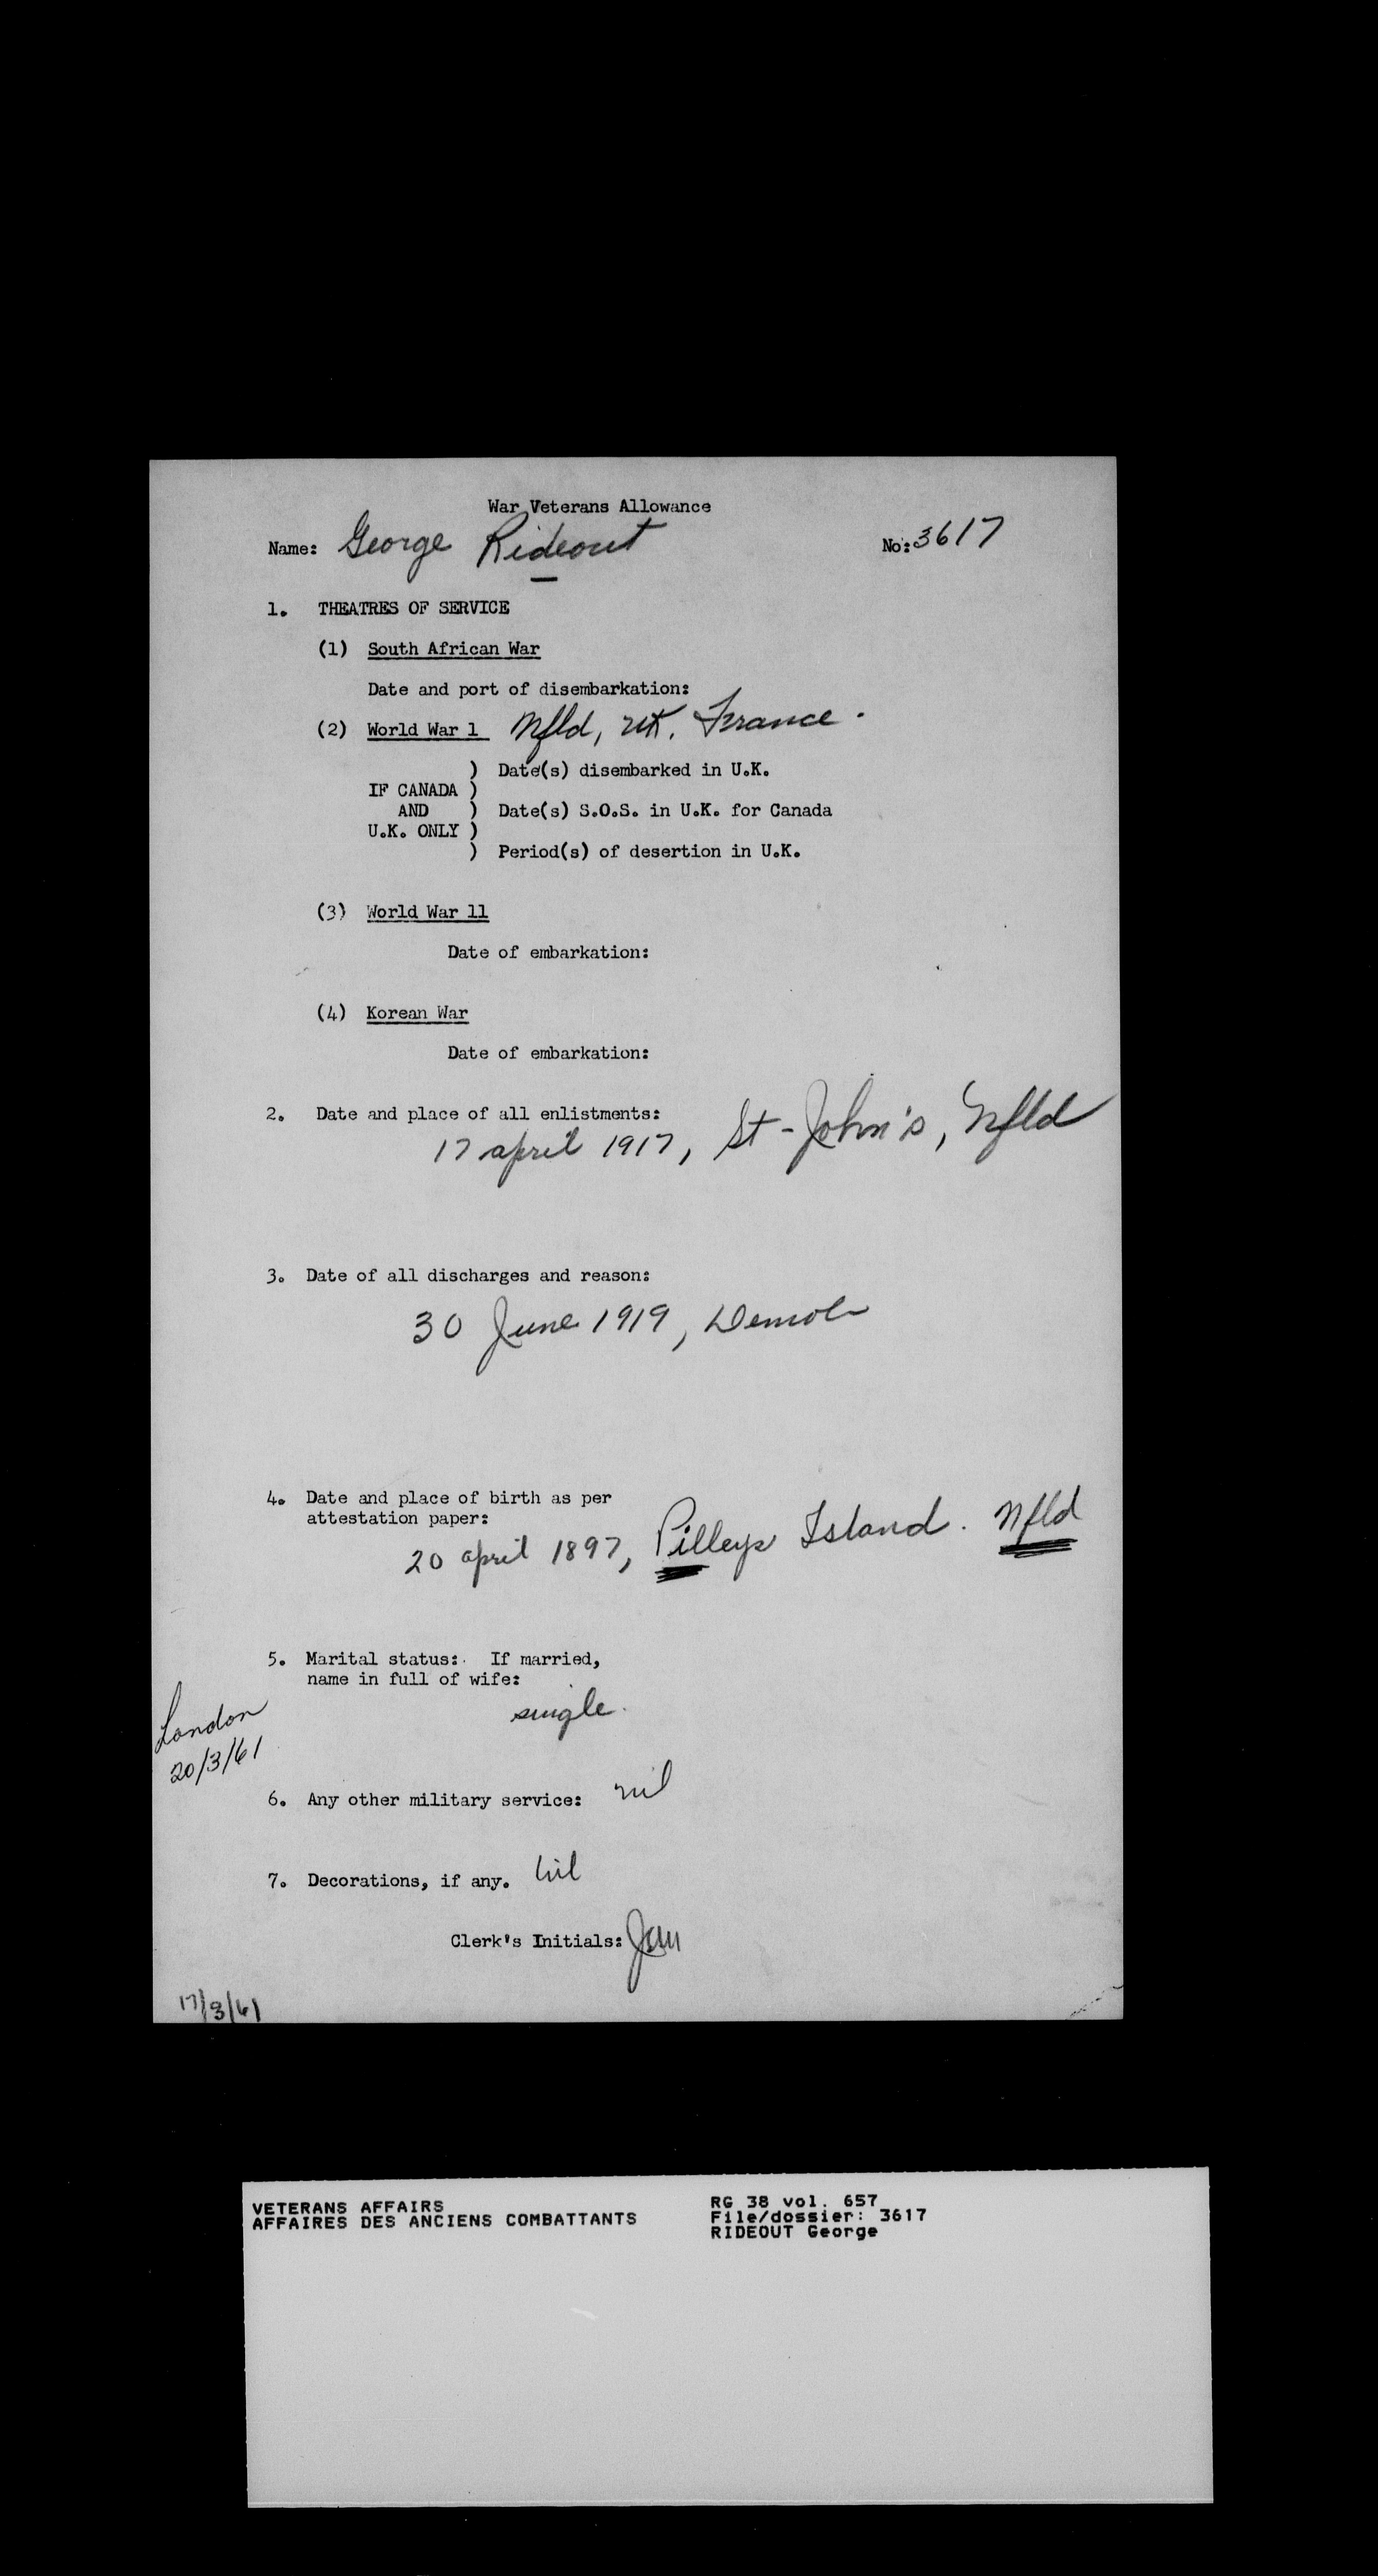 War Veterans Allowance
Name: George Rideout No: 3617
1. THEATRES OF SERVICE
(1) South African War
Date and port of disembarkation:
(2) World War 1 Nfld, UK. France.
) Date(s) disembarked in U.K.
IF CANADA )
AND ) Date(s) S.O.S. in U.K. for Canada
U.K. ONLY )
) Period(s) of desertion in U.K.
(3) World War 11
Date of embarkation:
(4) Korean War
Date of embarkation:
2. Date and place of all enlistments:
17 april 1917, St-John's, Nfld
3. Date of all discharges and reason:
30 June 1919, Demob
4. Date and place of birth as per
attestation paper:
20 april 1897, Pilleys Island. Nfld
5. Marital status: If married,
name in full of wife:
single.
London
20/3/61
6. Any other military service: nil
7. Decorations, if any. nil
Clerk's Initials:
17/3/61
VETERANS AFFAIRS
AFFAIRES DES ANCIENS COMBATTANTS
RG 38 vol. 657
File/dossier: 3617
RIDEOUT George